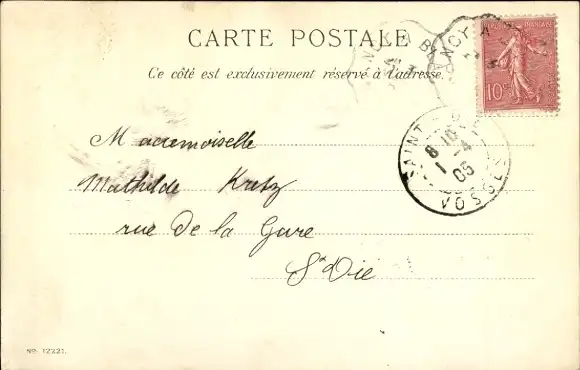 CARTE POSTALE
Ce côté est exclusivement réservé à l'adresse.
10c
SAINT-
8
1 - 4
05
VOSGES
Mademoiselle
Mathilde Kretz
rue de la Gare
St Dié
No 12221.